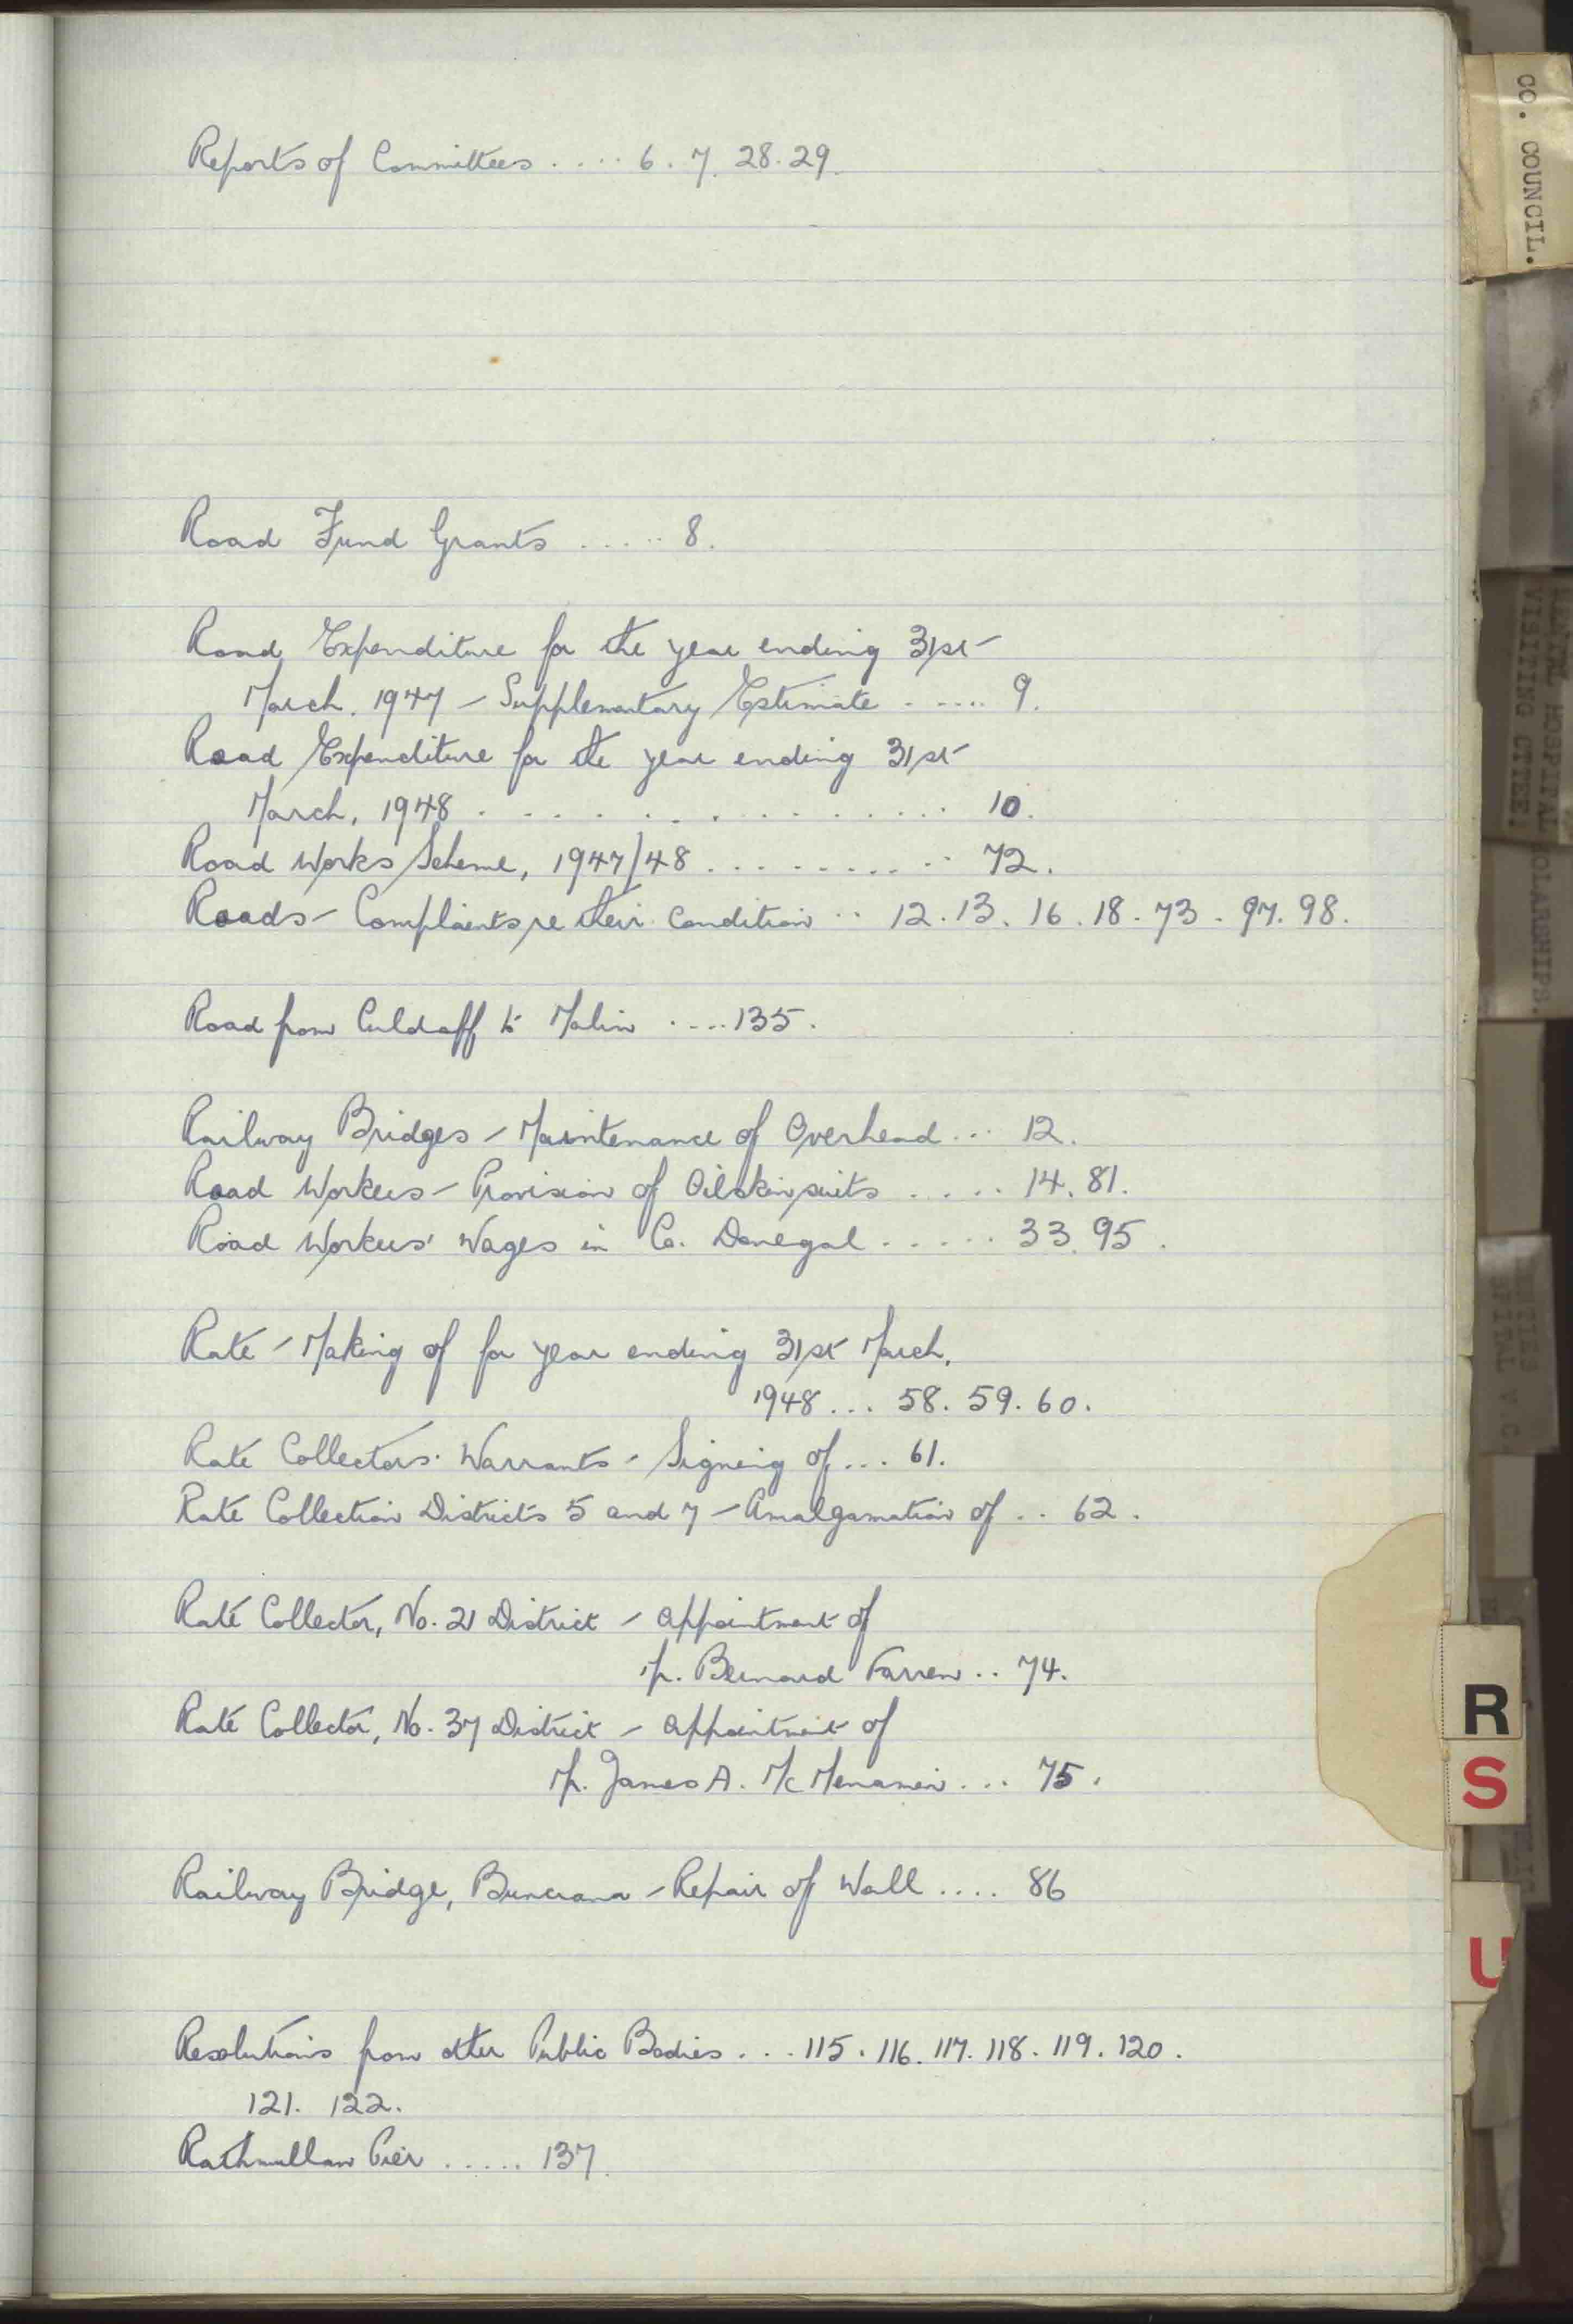 Reports of Committees ..... 6. 7. 28. 29.
Road Fund Grants ..... 8.
Road Expenditure for the year ending 31st
March. 1947 - Supplementary Estimate ..... 9.
Road Expenditure for the year ending 31st
March, 1948 ................ 10.
Road Works Scheme, 1947/48 ......... 72.
Roads - Complaints re their Condition .. 12. 13. 16. 18. 73. 97. 98.
Road from Culdaff to Malin .... 135.
Railway Bridges - Maintenance of Overhead ... 12.
Road Workers - Provision of Oilskin suits ..... 14. 81.
Road Workers' Wages in Co. Donegal ..... 33. 95.
Rate - Making of for year ending 31st March,
1948 ... 58. 59. 60.
Rate Collectors' Warrants - Signing of ... 61.
Rate Collection Districts 5 and 7 - Amalgamation of .. 62.
Rate Collector, No. 21 District - appointment of
Mr. Bernard Farren .. 74.
Rate Collector, No. 37 District - appointment of
Mr. James A. McMenamin ... 75.
Railway Bridge, Buncrana - Repair of Wall .... 86
Resolutions from other Public Bodies ... 115. 116. 117. 118. 119. 120.
121. 122.
Rathmullan Pier ..... 137.
CO. COUNCIL.
HOSPITAL
VISITING CTTEE.
R
S
U